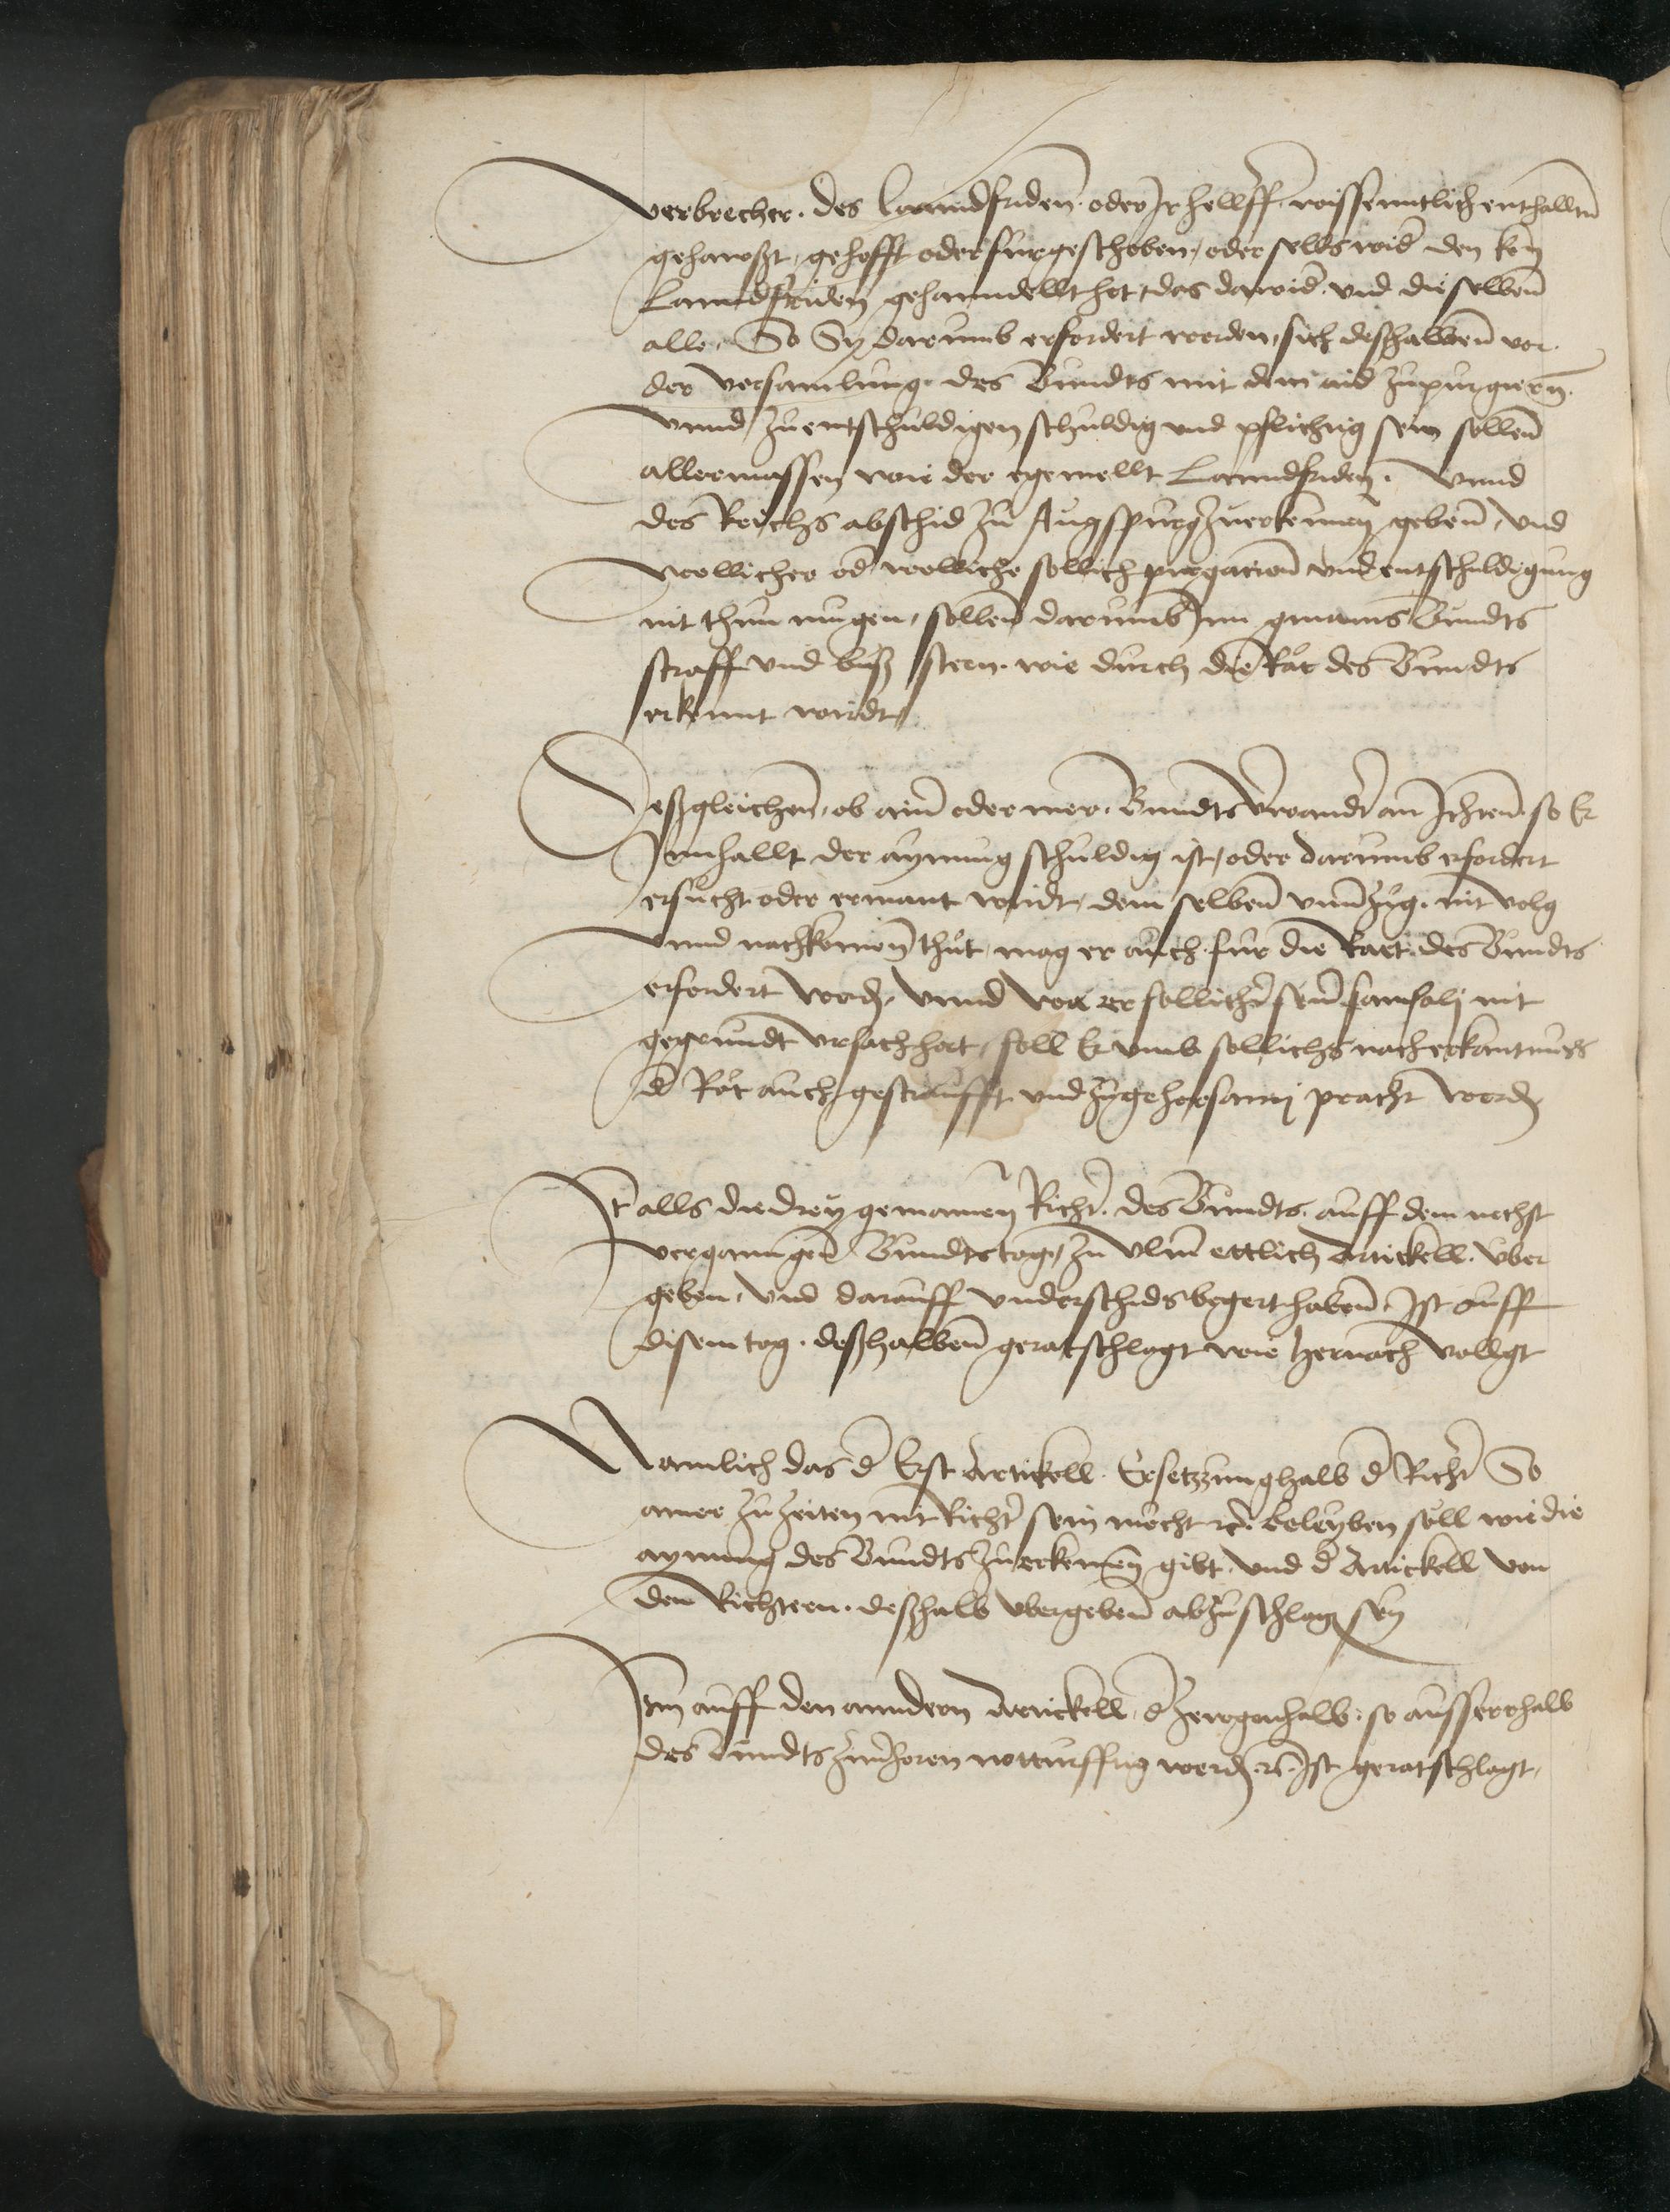 verbrecher. des Lanndfriden. oder Ir hellff. wissenntlich enthallten
gehawßt, gehofft oder furgeschoben, oder selbs wider den kön
Lanndfriden gehanndellt het, das derwid. vnd dieselben
alle. So Sy darumb erfordert werden, sich deßhalben vor
der versamlung. des Bundts mit dem aid zupurgiern.
vnnd zuentschuldigen schuldig vnd pflichtig sein sollen
allermassen wie der egemellt Lanndfriden. Vnnd
des Reichs abschid zu Augspurg zuerkennen geben, vnd
wellicher od welliche sollich purgacion vnd entschuldigung
nit thun mugen, sollen darumb Inn gmains Bundts
straff vnd buß steen. wie durch die Rät des Bundts
erkennt wirdt,
Deßgleichen, ob ainer oder mer. Bundtsverwandt an Ichten. so Er
Innhallt der aynung schuldig ist, oder darumb erfordert
ersucht oder ermant wirdt, dem selben vnuerzug. nit volg
vnnd nachkomen thut, mag er auch. fur die Raet. des Bundts
erfordert werden, vnnd wa er sollicher seiner saumsali nit
gegrundt vrsach hat, soll Er vmb sollichs nach erkantnuß
d Rät auch gestraufft vnd zu gehorsami pracht werden
It alls die drey gemainen Richter. des Bundts. auff dem nechst
verganngen Bundtstag, zu Vlm ettlich Artickell. vber
geben, vnd darauff vnderschids begert haben, Ist auff
disem tag. deßhalben geratschlagt wie hernach vollgt
Namlich das d Erst Artickell. Ersetzung halb d Richter So
ainer zu zeiten nit Richter sein möcht etc. beleyben soll wie die
aynung des Bundts zuerkennen gibt. vnd d Artickell von
den Richtern. deßhalb vbergeben abzuschlagen sey
Itm auff den anndern Artickell, d Zewgen halb. so ausserrhalb
des Bundts zuuerhoren notturfftig werden etc. Ist geratschlagt,